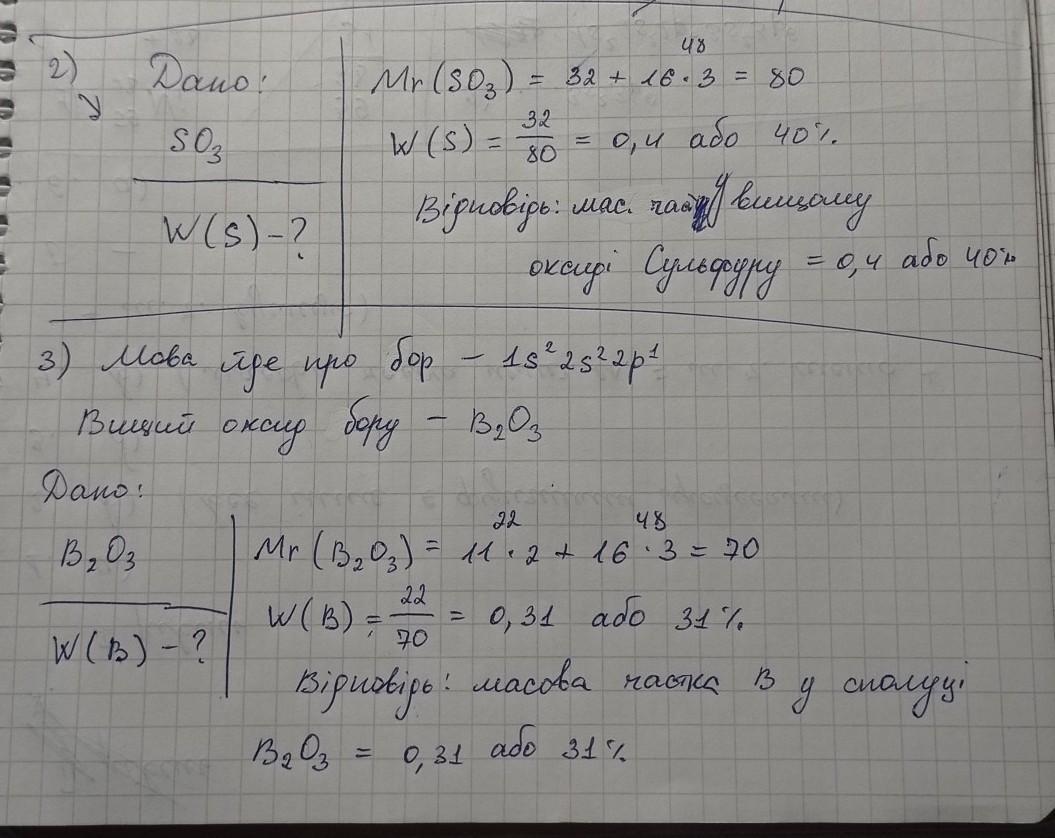 2) Дано:
SO₃
W(S) – ?
48
Mr(SO₃) = 32 + 16 · 3 = 80
W(S) = 32/80 = 0,4 або 40%.
Відповідь: мас. част у вищому
оксиді Сульфуру = 0,4 або 40%
3) Мова йде про бор – 1s² 2s² 2p¹
Вищий оксид бору – B₂O₃
Дано:
B₂O₃
W(B) – ?
22 48
Mr(B₂O₃) = 11 · 2 + 16 · 3 = 70
W(B) = 22/70 = 0,31 або 31%.
Відповідь: масова частка B у сполуці
B₂O₃ = 0,31 або 31%